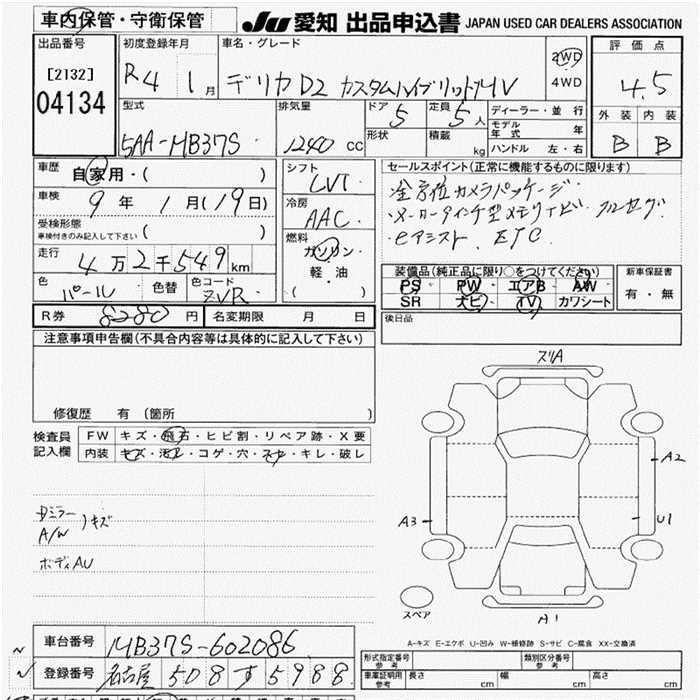 車内保管・守衛保管
JU 愛知 出品申込書 JAPAN USED CAR DEALERS ASSOCIATION
出品番号
[2132]
04134
初度登録年月
R4 1月
車名・グレード
デリカD2 カスタムハイブリッドMV
2WD
4WD
評価点
4.5
外装 内装
B B
型式
5AA-MB37S
排気量
1240 cc
ドア 5
定員 5人
形状
積載 kg
ディーラー・並行
モデル年式 年
ハンドル 左・右
車歴
自家用・( )
車検
9年 1月(19日)
受検形態
車検付きのみ記入して下さい ( )
走行
4万2千549km
色 パール
色替
色コード ZVR
シフト
CVT
冷房
AAC
燃料
ガソリン
軽・油
( )
セールスポイント(正常に機能するものに限ります)
・全方位カメラパッケージ
・メーカーナビ フルセグ
・eアシスト、ETC
装備品(純正品に限り○をつけてください)
PS PW エアB AW
SR ナビ TV カワシート
新車保証書
有・無
R券 8280円
名変期限 月 日
後日品
注意事項申告欄(不具合内容等は具体的に記入して下さい)
修復歴 有(箇所 )
検査員記入欄
FW キズ・飛石・ヒビ割・リペア跡・X要
内装 キズ・汚れ・コゲ・穴・スレ・キレ・破レ
Dミラー
A/W
)キズ
ボディAU
ズリA
A2
A3
U1
A1
スペア
A-キズ E-エクボ U-凹み W-補修跡 S-サビ C-腐食 XX-交換済
車台番号 MB37S-602086
登録番号 名古屋 508 す 5988
形式指定番号 参考
類別区分番号 参考
車庫証明用 参考
長さ cm
幅 cm
高さ cm